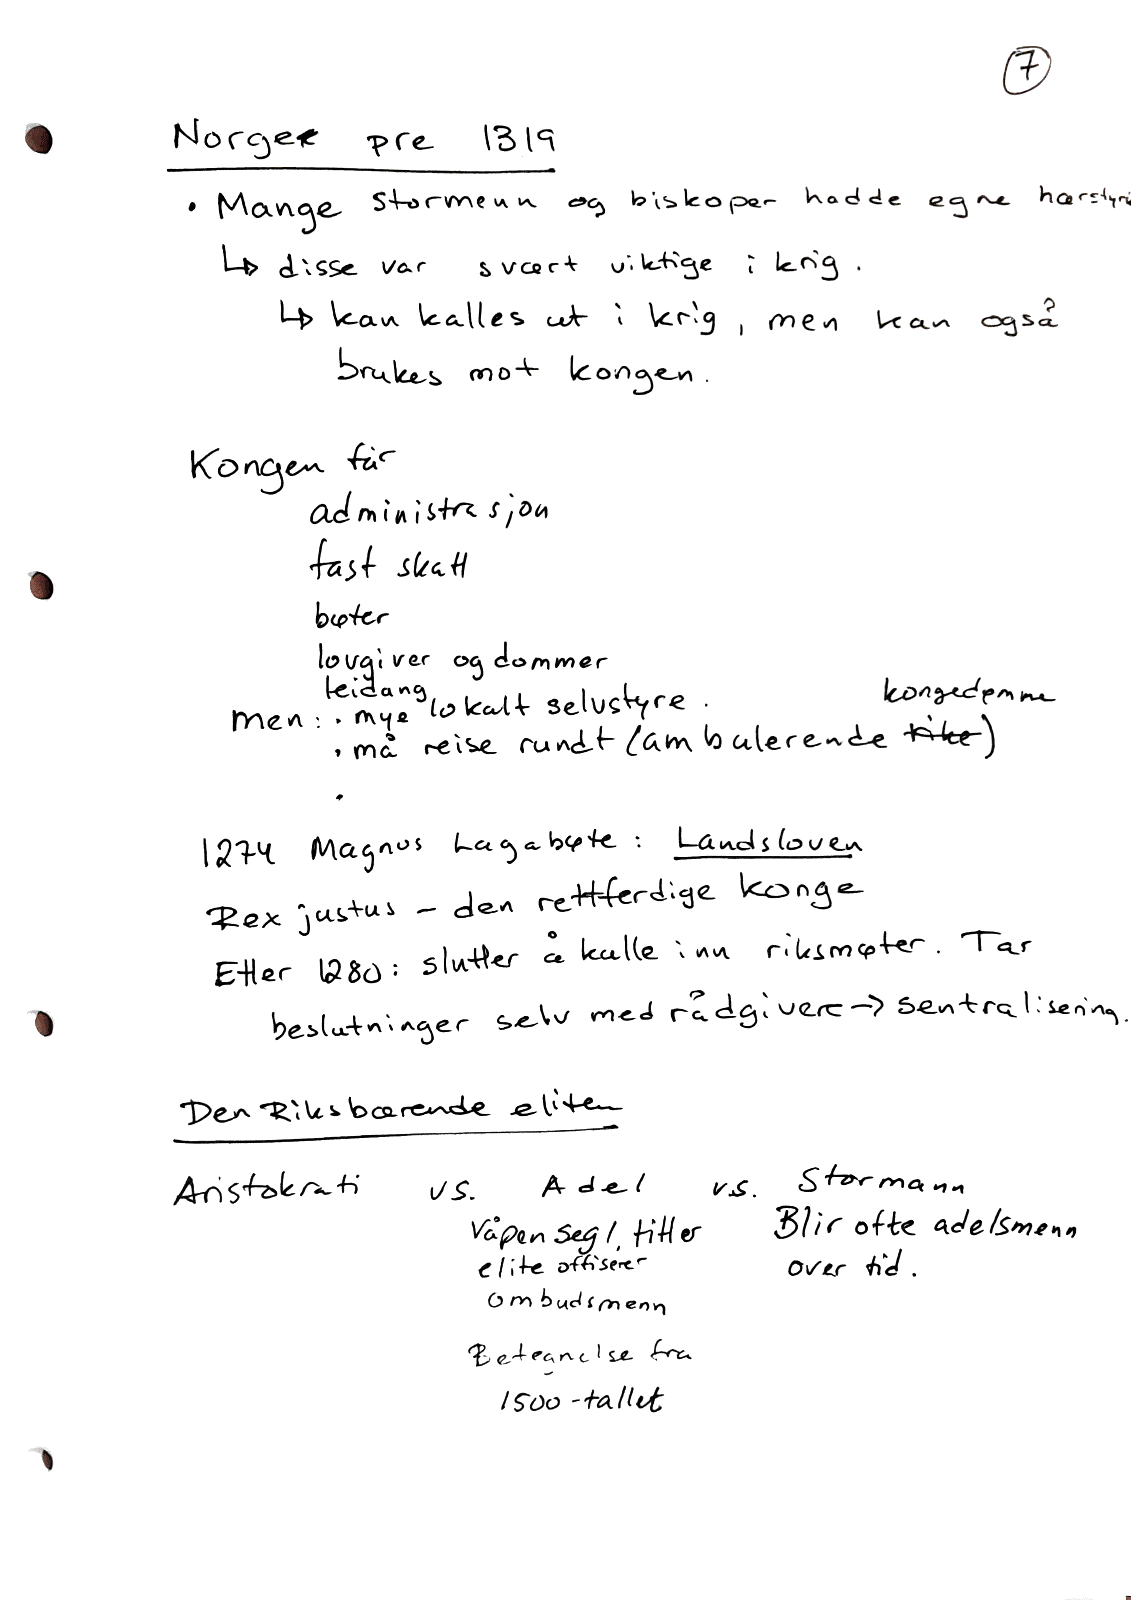 7
Norge pre 1319
• Mange stormenn og biskoper hadde egne hærstyr
↳ disse var svært viktige i krig.
↳ kan kalles ut i krig, men kan også
brukes mot kongen.
Kongen får
administrasjon
fast skatt
bøter
lovgiver og dommer
leidang
men: • mye lokalt selvstyre.
kongedømme
• må reise rundt (ambulerende rike)
•
1274 Magnus Lagabøte: Landsloven
Rex justus – den rettferdige konge
Etter 1280: slutter å kalle inn riksmøter. Tar
beslutninger selv med rådgivere → sentralisering.
Den Riksbærende eliten
Aristokrati vs. Adel v.s. Stormann
Våpen segl, titler Blir ofte adelsmenn
elite offiserer over tid.
ombudsmenn
Betegnelse fra
1500-tallet